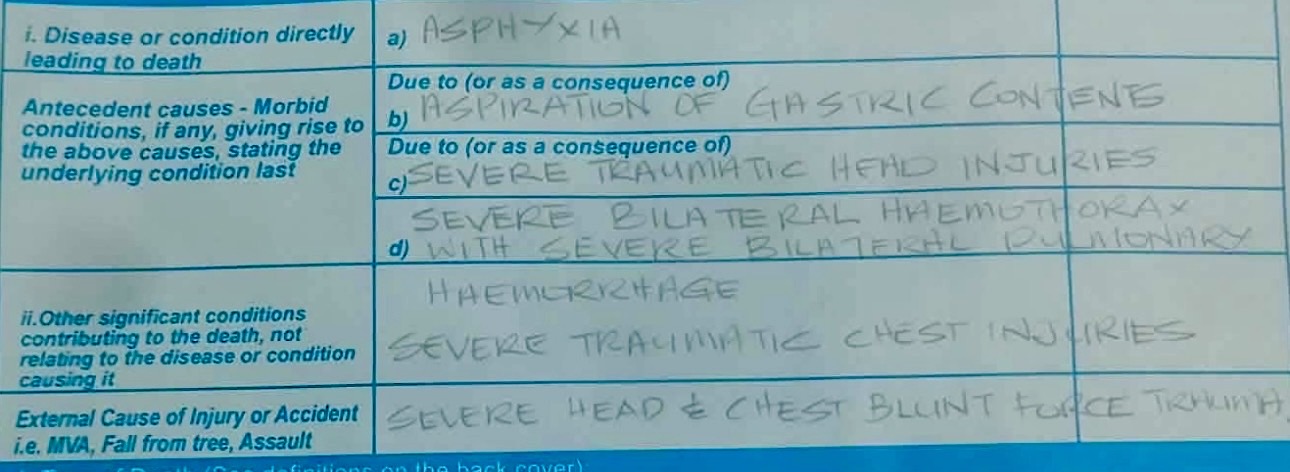 i. Disease or condition directly
leading to death
a) ASPHYXIA
Antecedent causes - Morbid
conditions, if any, giving rise to
the above causes, stating the
underlying condition last
Due to (or as a consequence of)
b) ASPIRATION OF GASTRIC CONTENTS
Due to (or as a consequence of)
c) SEVERE TRAUMATIC HEAD INJURIES
SEVERE BILATERAL HAEMOTHORAX
d) WITH SEVERE BILATERAL PULMONARY
HAEMORRHAGE
ii.Other significant conditions
contributing to the death, not
relating to the disease or condition
causing it
SEVERE TRAUMATIC CHEST INJURIES
External Cause of Injury or Accident
i.e. MVA, Fall from tree, Assault
SEVERE HEAD & CHEST BLUNT FORCE TRAUMA
of Death (See definitions on the back cover)